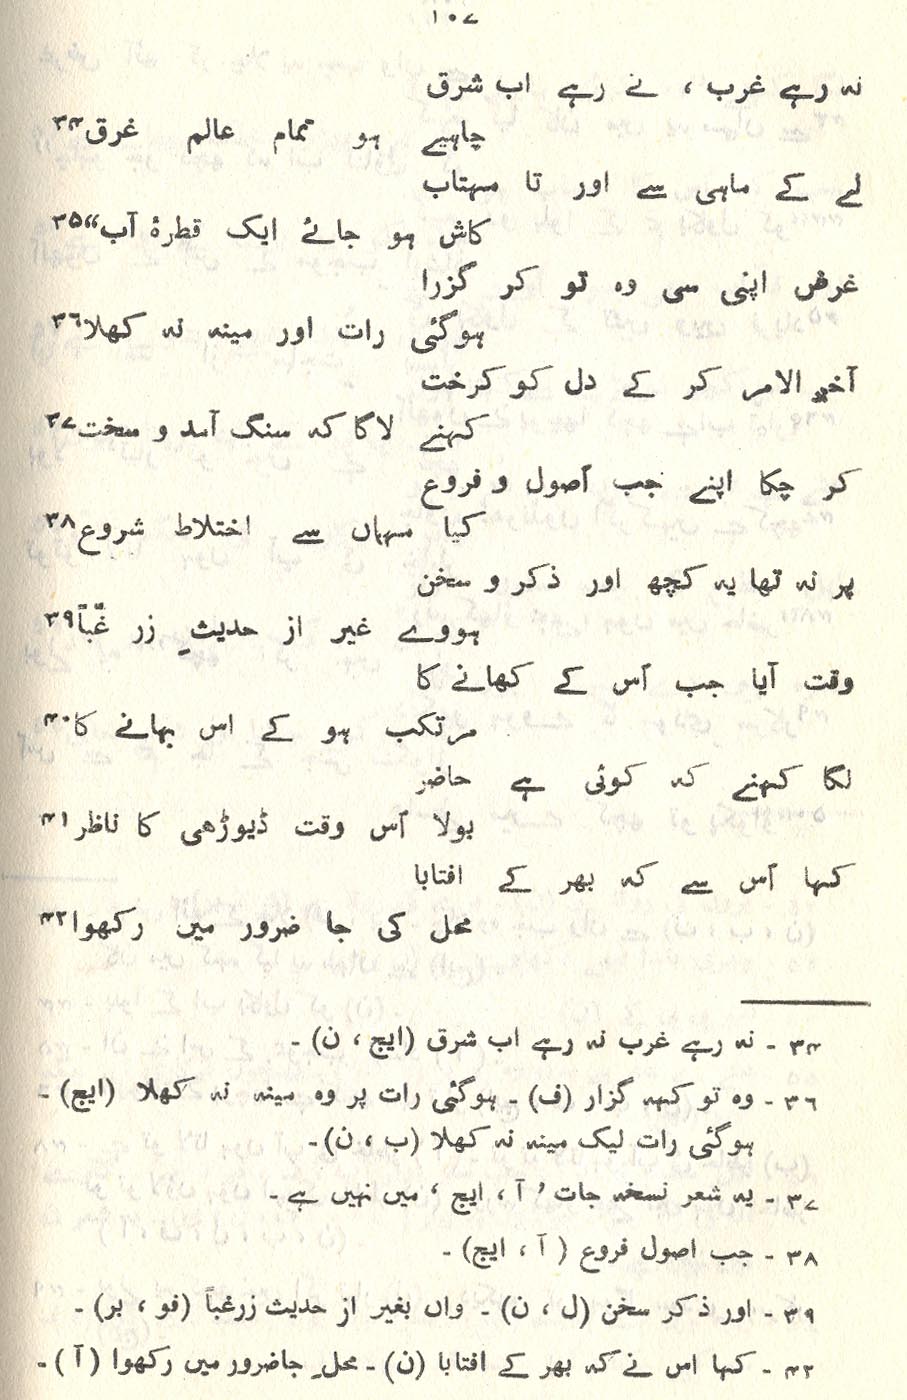 ۱۰۷
نہ رہے غرب ، نے رہے اب شرق
چاہیے ہو تمام عالم غرق۳۴
لے کے ماہی سے اور تا مہتاب
کاش ہو جائے ایک قطرۂ آب“۳۵
غرض اپنی سی وہ تو کر گزرا
ہوگئی رات اور مینہ نہ کھلا۳۶
آخر الامر کر کے دل کو کرخت
کہنے لاگا کہ سنگ آمد و سخت۳۷
کر چکا اپنے جب اُصول و فروع
کیا مہماں سے اختلاط شروع۳۸
پر نہ تھا یہ کچھ اور ذکر و سخن
ہووے غیر از حدیثِ زر غبّاً۳۹
وقت آیا جب اُس کے کھانے کا
مرتکب ہو کے اس بہانے کا۴۰
لگا کہنے کہ کوئی ہے حاضر
بولا اُس وقت ڈیوڑھی کا ناظر۴۱
کہا اُس سے کہ بھر کے افتابا
محل کی جا ضرور میں رکھوا۴۲
۳۴ - نہ رہے غرب نہ رہے اب شرق (ایچ ، ن) -
۳۶ - وہ تو کہہ گزار (ف) - ہوگئی رات پر وہ مینہ نہ کھلا (ایچ) -
ہوگئی رات لیک مینہ نہ کھلا (ب ، ن) -
۳۷ - یہ شعر نسخہ جات ’ آ ، ایچ ‘ میں نہیں ہے -
۳۸ - جب اصول فروع ( آ ، ایچ) -
۳۹ - اور ذکر سخن (ل ، ن) - واں بغیر از حدیث زرغباً (فو ، بر) -
۴۲ - کہا اس نے کہ بھر کے افتابا (ن) - محلِ جاضرور میں رکھوا (آ) -